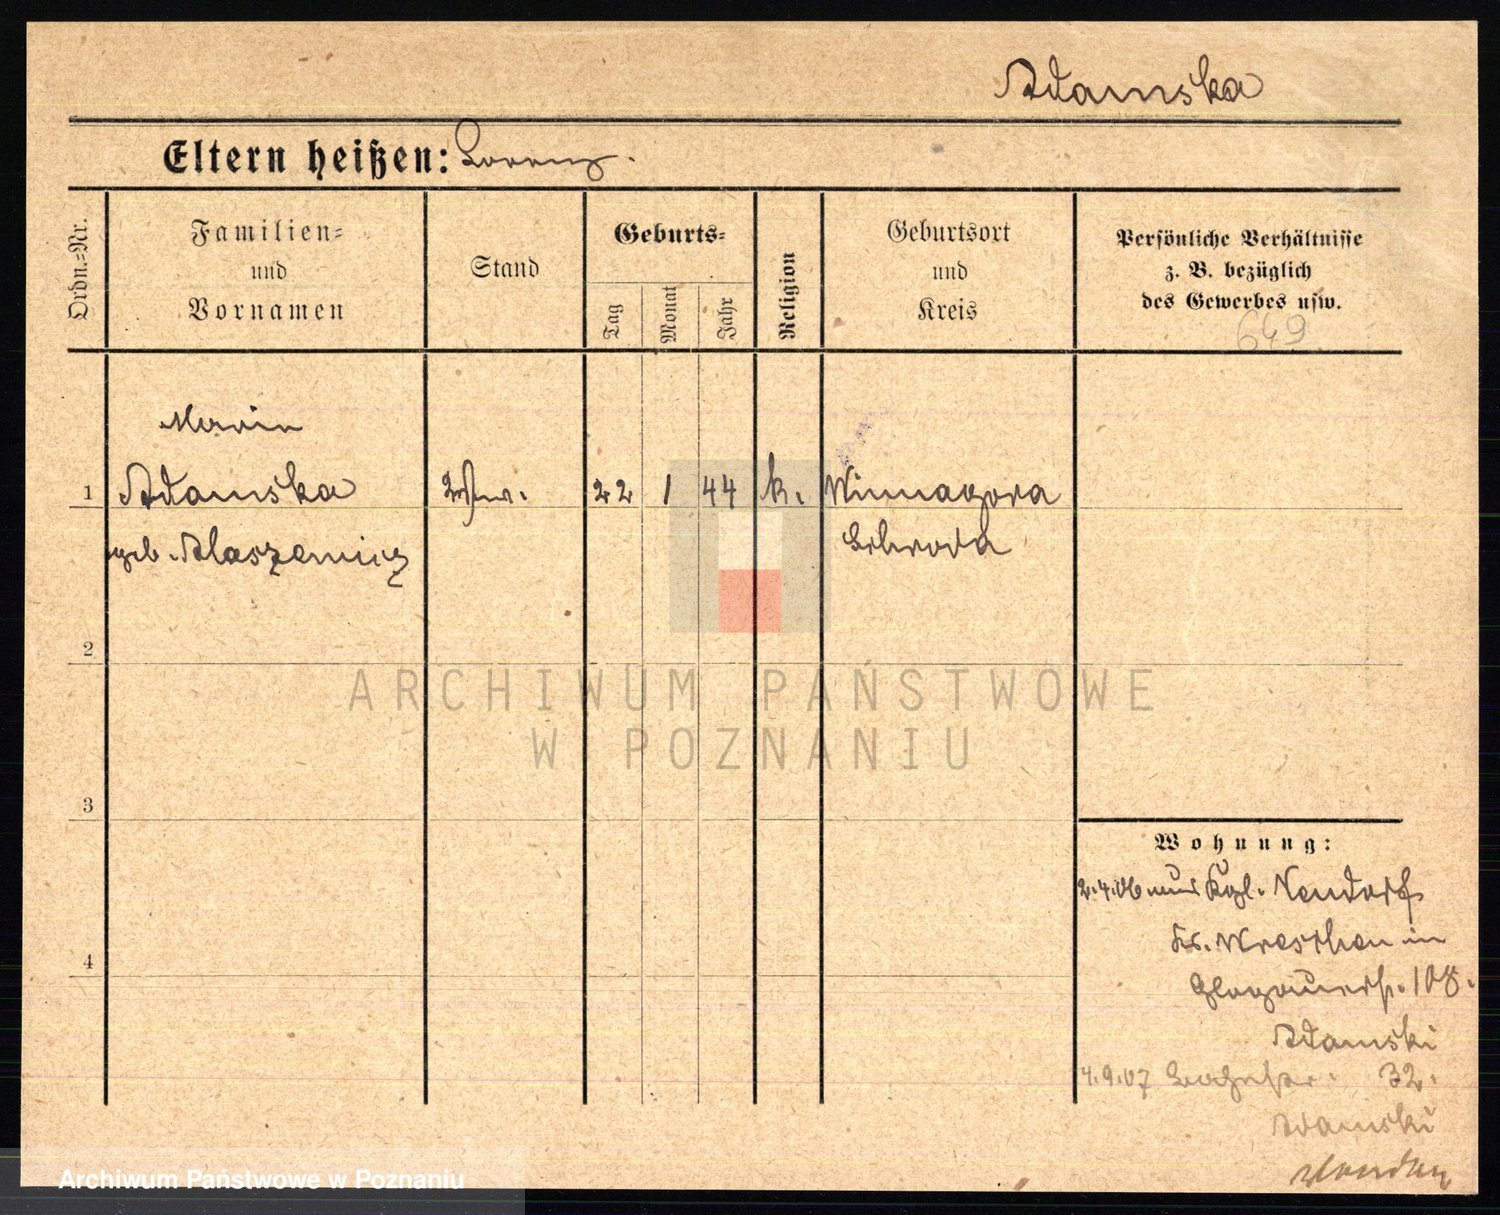 Adamska
Eltern heißen: Lorenz.
Ordn.-Nr.
Familien-
und
Vornamen
Stand
Geburts-
Tag
Monat
Jahr
Religion
Geburtsort
und
Kreis
Persönliche Verhältnisse
z. B. bezüglich
des Gewerbes usw.
649
Maria
1 Adamska 22 1 44 k. Winnagora
geb. Blaszewicz Schroda
2
3
4
Wohnung:
2.4.06 aus Kgl. Neudorf
Kr. Wreschen in
Glogauerstr. 108.
Adamski
4.9.07 32.
Adamski
ARCHIWUM PAŃSTWOWE
W POZNANIU
Archiwum Państwowe w Poznaniu